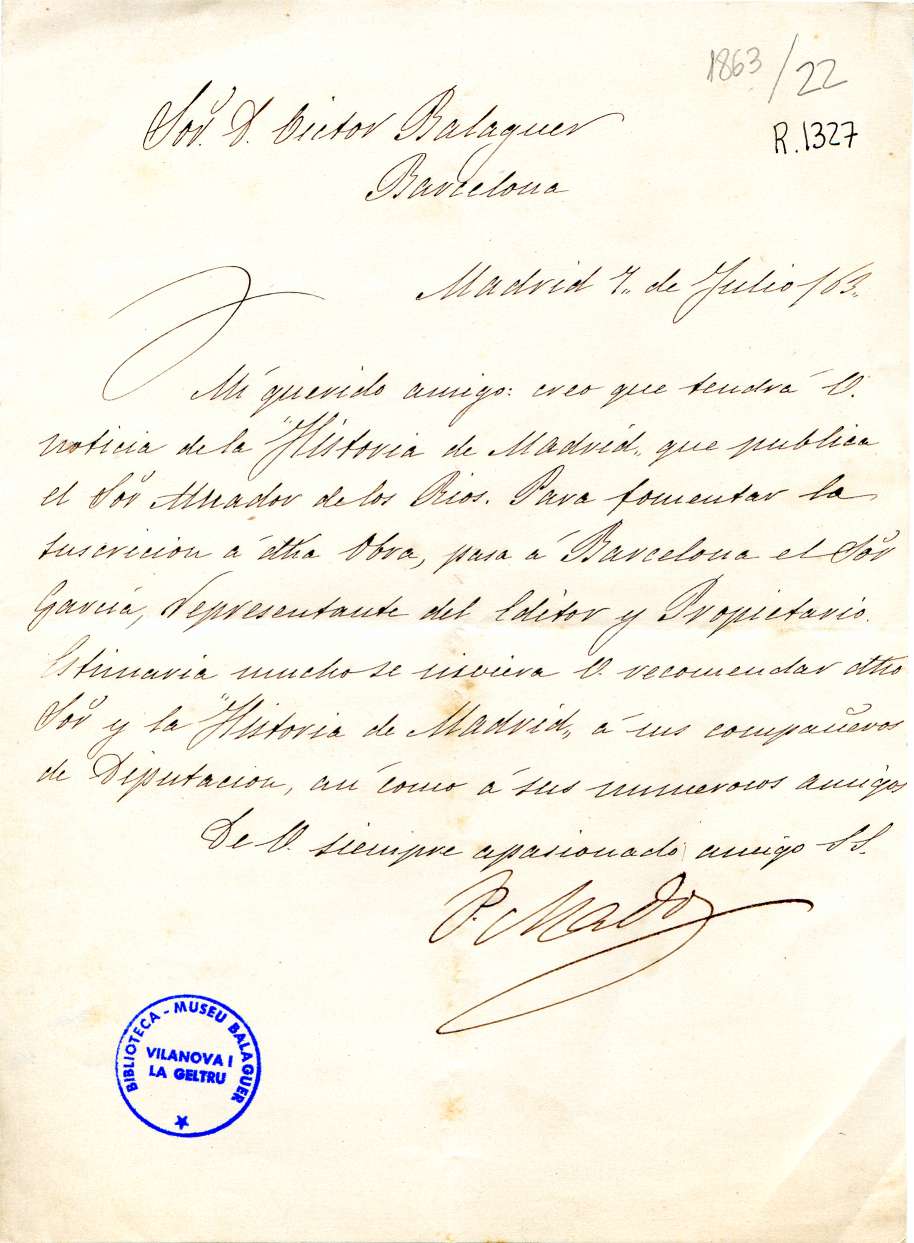 1863/22
R.1327
Sor. D. Victor Balaguer
Barcelona
Madrid 7,, de Julio /63,,
Mi querido amigo: creo que tendrá V.
noticia de la "Historia de Madrid,, que publica
el Sor Amador de los Rios. Para fomentar la
suscricion á dha Obra, pasa á Barcelona el Sor
García, representante del Editor y Propietario.
Estimaria mucho se sirviera V. recomendar dho
Sor y la "Historia de Madrid,, á sus compañeros
de Diputacion, asi como á sus numerosos amigos
De V. siempre apasionado amigo S.S.
P. Madoz
BIBLIOTECA - MUSEU BALAGUER
VILANOVA I
LA GELTRU